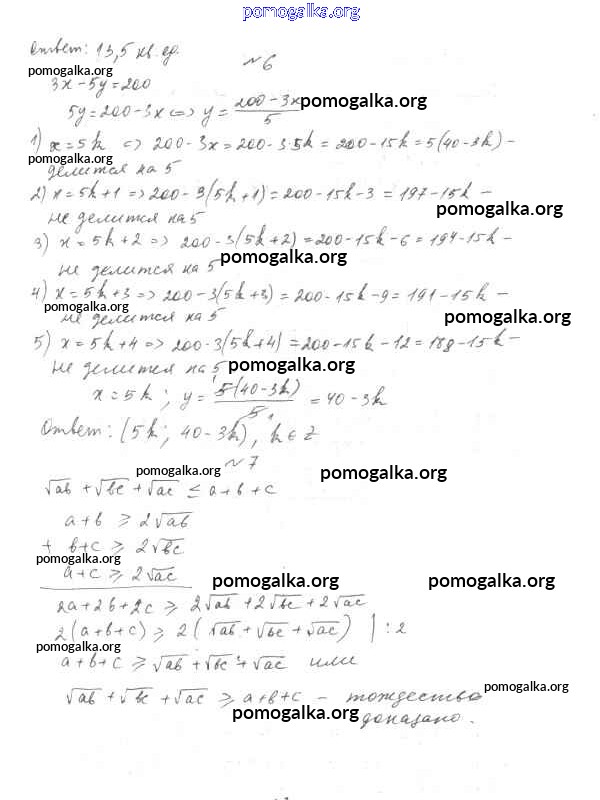 pomogalka.org
Ответ: 13,5 кв. ед.
№6
pomogalka.org
3x - 5y = 200
5y = 200 - 3x <=> y = (200 - 3x)/5 pomogalka.org
1) x = 5k => 200 - 3x = 200 - 3·5k = 200 - 15k = 5(40 - 3k) -
pomogalka.org
делится на 5
2) x = 5k + 1 => 200 - 3(5k + 1) = 200 - 15k - 3 = 197 - 15k -
не делится на 5 pomogalka.org
3) x = 5k + 2 => 200 - 3(5k + 2) = 200 - 15k - 6 = 194 - 15k -
не делится на 5 pomogalka.org
4) x = 5k + 3 => 200 - 3(5k + 3) = 200 - 15k - 9 = 191 - 15k -
pomogalka.org
не делится на 5 pomogalka.org
5) x = 5k + 4 => 200 - 3(5k + 4) = 200 - 15k - 12 = 188 - 15k -
не делится на 5 pomogalka.org
x = 5k ; y = 5(40 - 3k)/5 = 40 - 3k
Ответ: (5k ; 40 - 3k), k ∈ Z
№7
pomogalka.org pomogalka.org
√ab + √bc + √ac ≤ a + b + c
a + b ≥ 2√ab
+ b + c ≥ 2√bc
pomogalka.org
a + c ≥ 2√ac pomogalka.org pomogalka.org
2a + 2b + 2c ≥ 2√ab + 2√bc + 2√ac
2(a + b + c) ≥ 2(√ab + √bc + √ac) | : 2
pomogalka.org
a + b + c ≥ √ab + √bc + √ac или
√ab + √bc + √ac ≥ a + b + c - тождество pomogalka.org
pomogalka.org доказано.